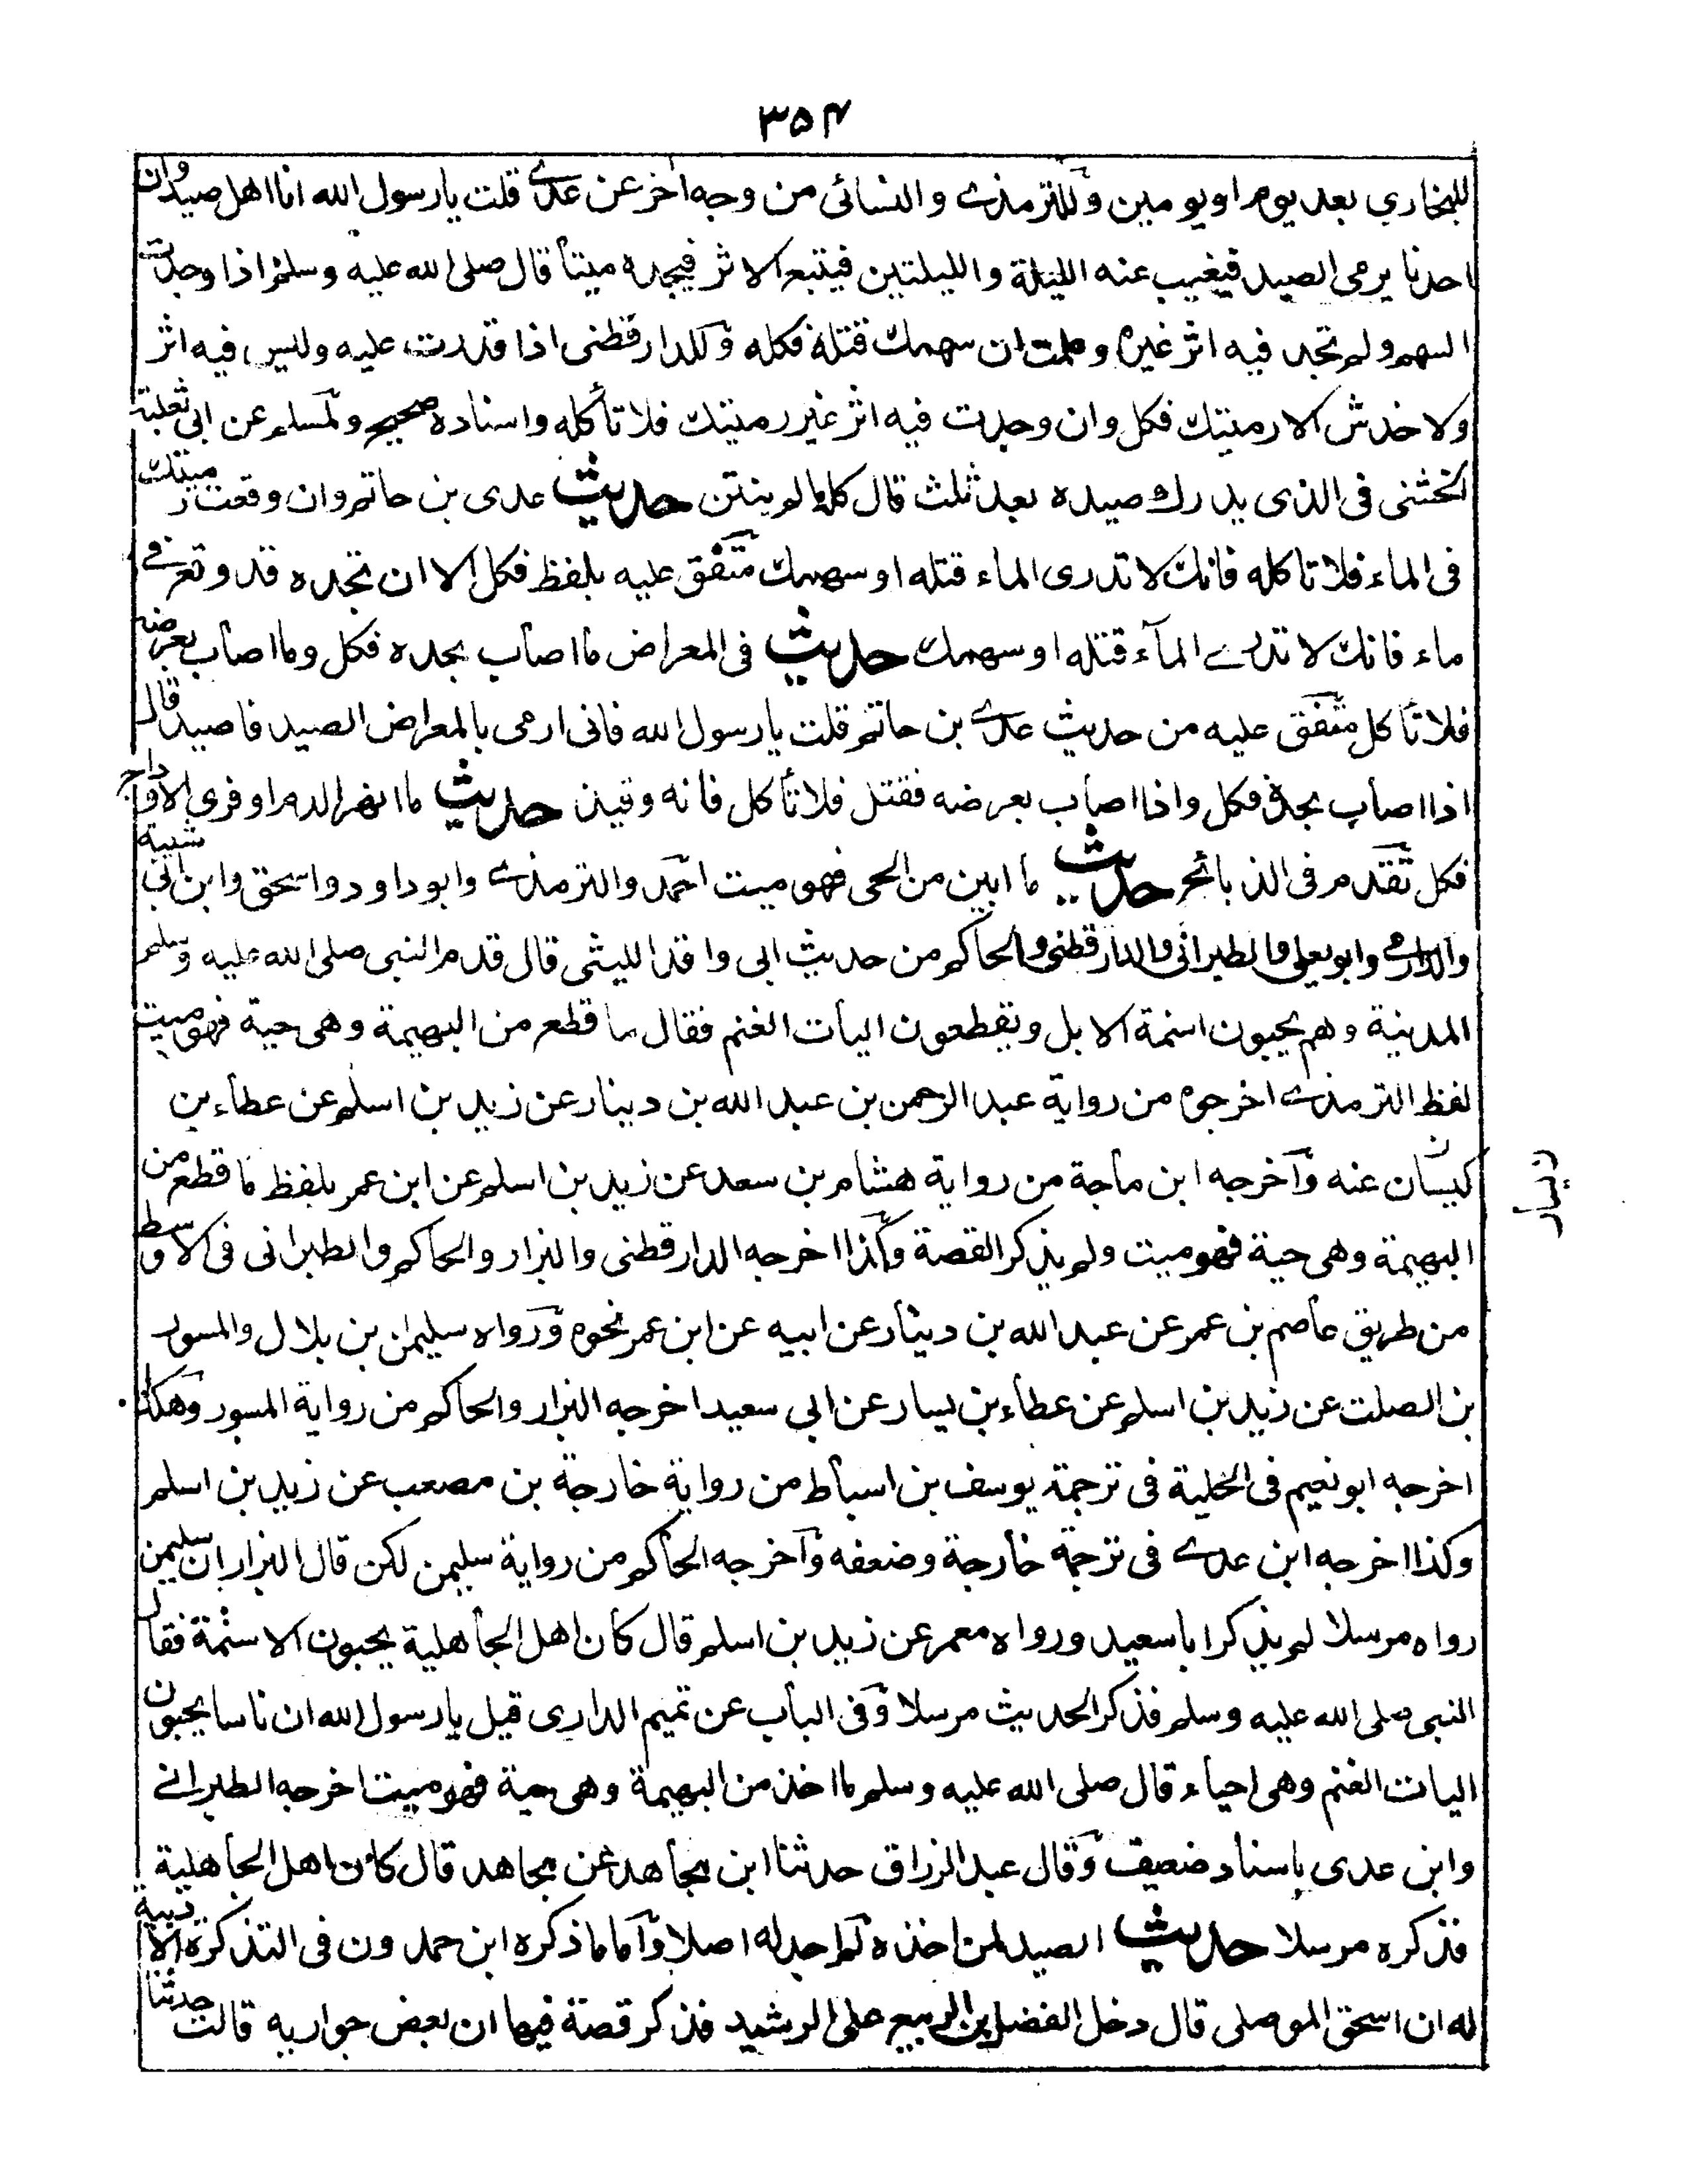 ٣٥٤
للبخاري بعد يوم او يومين وللترمذے والنسائى من وجه اخر عن عدے قلت يارسول الله انا اهل صيد وان
احدنا يرمى الصيد فيغيب عنه الليلة والليلتين فيتبع الاثر فيجده ميتا قال صلى الله عليه وسلم اذا وجدت
السهم ولم تجد فيه اثر غيره وعلمت ان سهمك قتله فكله وللدارقطنى اذا قدرت عليه وليس فيه اثر
ولا خدش الا رميتك فكل وان وجدت فيه اثر غير رميتك فلا تأكله واسناده صحيح ولمسلم عن ابى ثعلبة
الخشنى فى الذى يدرك صيده بعد ثلث قال كله مالم ينتن حديث عدى بن حاتم وان وقعت رميتك
فى الماء فلا تاكله فانك لا تدرى الماء قتله او سهمك متفق عليه بلفظ فكل الا ان تجده قد وقع فے
ماء فانك لا تدرے المآء قتله او سهمك حديث فى المعراض ما اصاب بحده فكل وما اصاب بعرضه
فلا تأكل متفق عليه من حديث عدے بن حاتم قلت يارسول الله فانى ارمى بالمعراض الصيد فاصيد قال
اذا اصاب بحده فكل واذا اصاب بعرضه فقتل فلا تأكل فانه وقيذ حديث ما انهر الدم او فرى الاوداج
فكل تقدم فى الذبائح حديث ما ابين من الحى فهو ميت احمد والترمذے وابو داود واسحق وابن ابى شيبة
والدارمے وابو يعلى والطبرانى والدارقطنى والحاكم من حديث ابى واقد الليثى قال قدم النبى صلى الله عليه وسلم
المدينة وهم يجبون اسنمة الابل ويقطعون اليات الغنم فقال ما قطع من البهيمة وهى حية فهو ميت
لفظ الترمذے اخرجوه من رواية عبد الرحمن بن عبد الله بن دينار عن زيد بن اسلم عن عطاء بن
كيسان عنه وآخرجه ابن ماجة من رواية هشام بن سعد عن زيد بن اسلم عن ابن عمر بلفظ ما قطع من
ن يسار
البهيمة وهى حية فهو ميت ولم يذكر القصة وكذا اخرجه الدارقطنى والبزار والحاكم والطبرانى فى الاوسط
من طريق عاصم بن عمر عن عبد الله بن دينار عن ابيه عن ابن عمر نحوه ورواه سليمان بن بلال والمسور
بن الصلت عن زيد بن اسلم عن عطاء بن يسار عن ابى سعيد اخرجه البزار والحاكم من رواية المسور وهكذا
اخرجه ابو نعيم فى الحلية فى ترجمة يوسف بن اسباط من رواية خارجة بن مصعب عن زيد بن اسلم
وكذا اخرجه ابن عدے فى ترجمة خارجة وضعفه وآخرجه الحاكم من رواية سليمن لكن قال البزار ان سليمن
رواه مرسلا لم يذكر ابا سعيد ورواه معمر عن زيد بن اسلم قال كان اهل الجاهلية يجبون الاسنمة فقال
النبى صلى الله عليه وسلم فذكر الحديث مرسلا وفى الباب عن تميم الدارى قيل يارسول الله ان ناسا يجبون
اليات الغنم وهى احياء قال صلى الله عليه وسلم ما اخذ من البهيمة وهى حية فهو ميت اخرجه الطبرانے
وابن عدى باسناد ضعيف وقال عبد الرزاق حدثنا ابن مجاهد عن مجاهد قال كان اهل الجاهلية
فذكره مرسلا حديث الصيد لمن اخذه لم اجد له اصلا وآما ما ذكره ابن حمدون فى التذكرة الادبية
له ان اسحق الموصلى قال دخل الفضل بن الربيع على الرشيد فذكر قصة فيها ان بعض جواريه قالت حدثنا